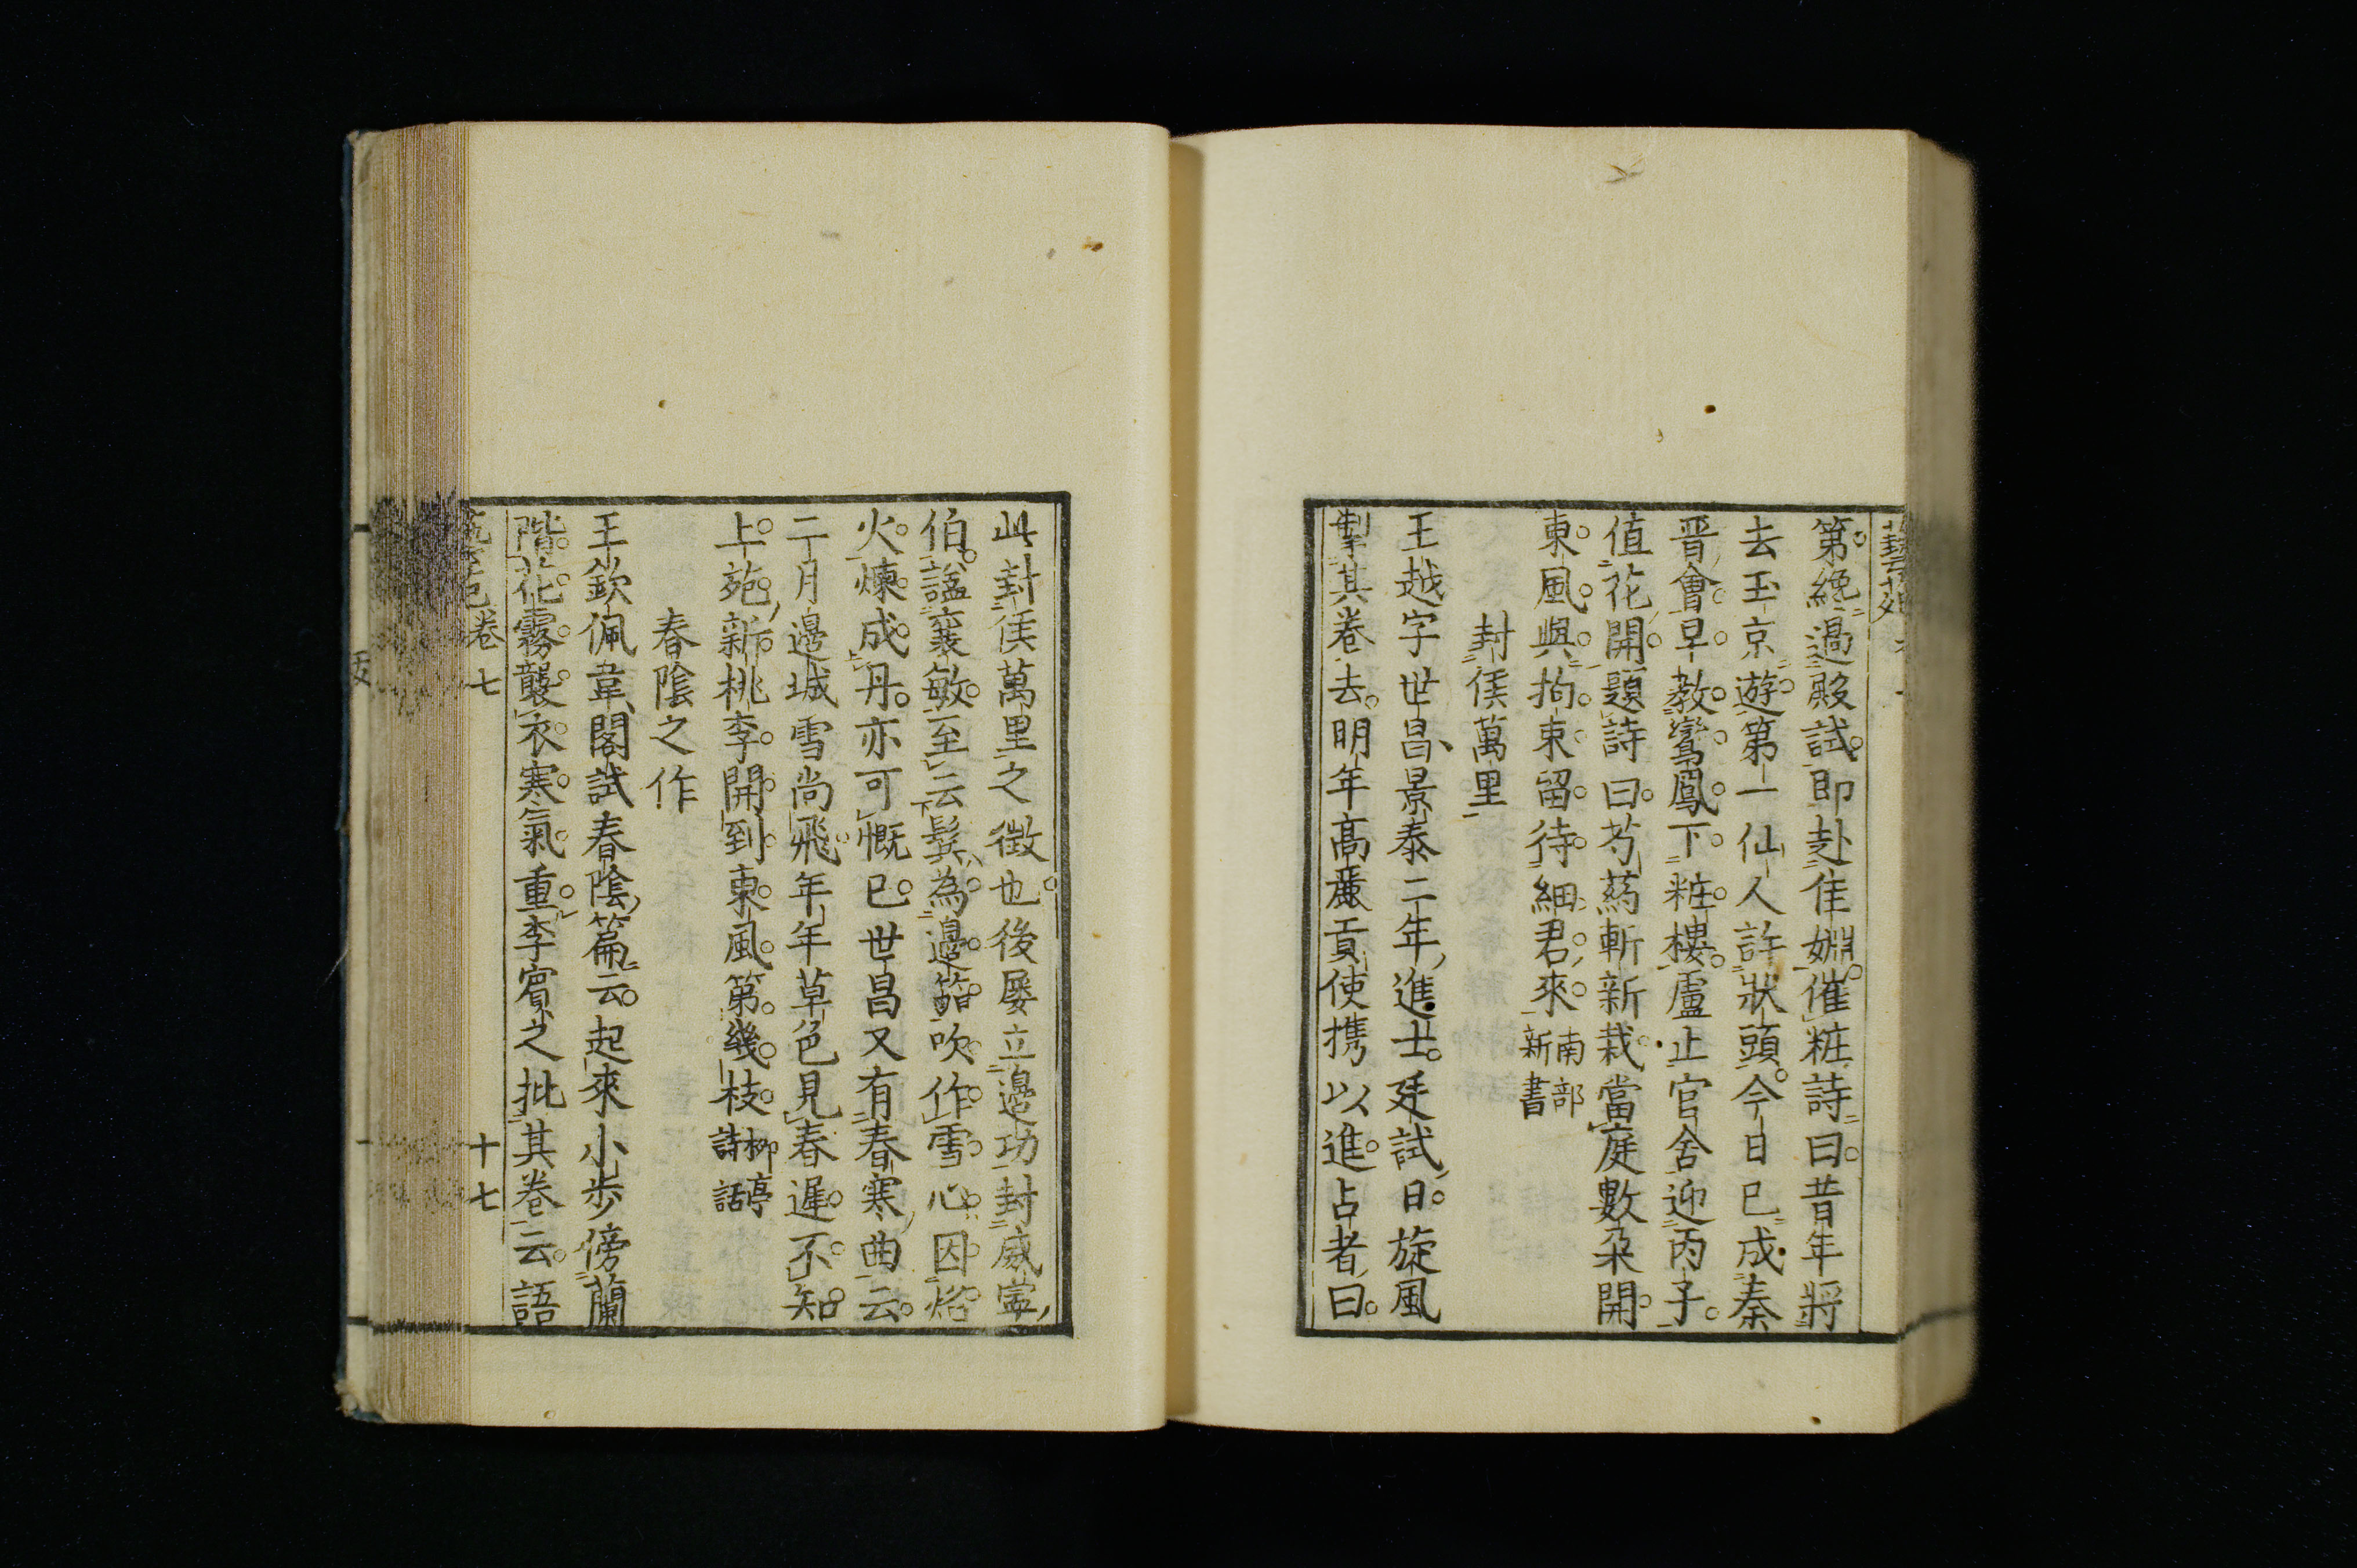 第纔過殿試即赴佳婣催粧詩曰昔年將
去玉京遊第一仙人許狀頭今日已成秦
晋會早教鸞鳳下粧樓盧止官舍迎丙子
值花開題詩曰芍藥斬新栽當庭數朶開
東風與拘束留待細君來南部新書
封侯萬里
王越字世昌景泰二年進士廷試日旋風
掣其卷去明年高麗貢使携以進占者曰
此封侯萬里之徵也後屡立邊功封威寧
伯謚襄敏至云鬂為邊笳吹作雪心因烙
火煉成丹亦可慨已世昌又有春寒曲云
二月邊城雪尚飛年年草色見春遲不知
上苑新桃李開到東風第幾枝柳亭詩話
春陰之作
王欽佩韋閣試春陰篇云起來小步傍蘭
階花霧襲衣寒氣重李賓之批其卷云語
卷七
十七